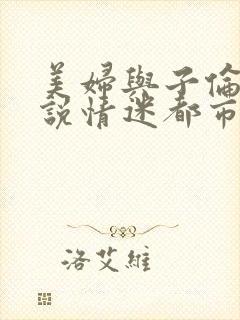 美婦與子倫
說情迷都市
洛艾維